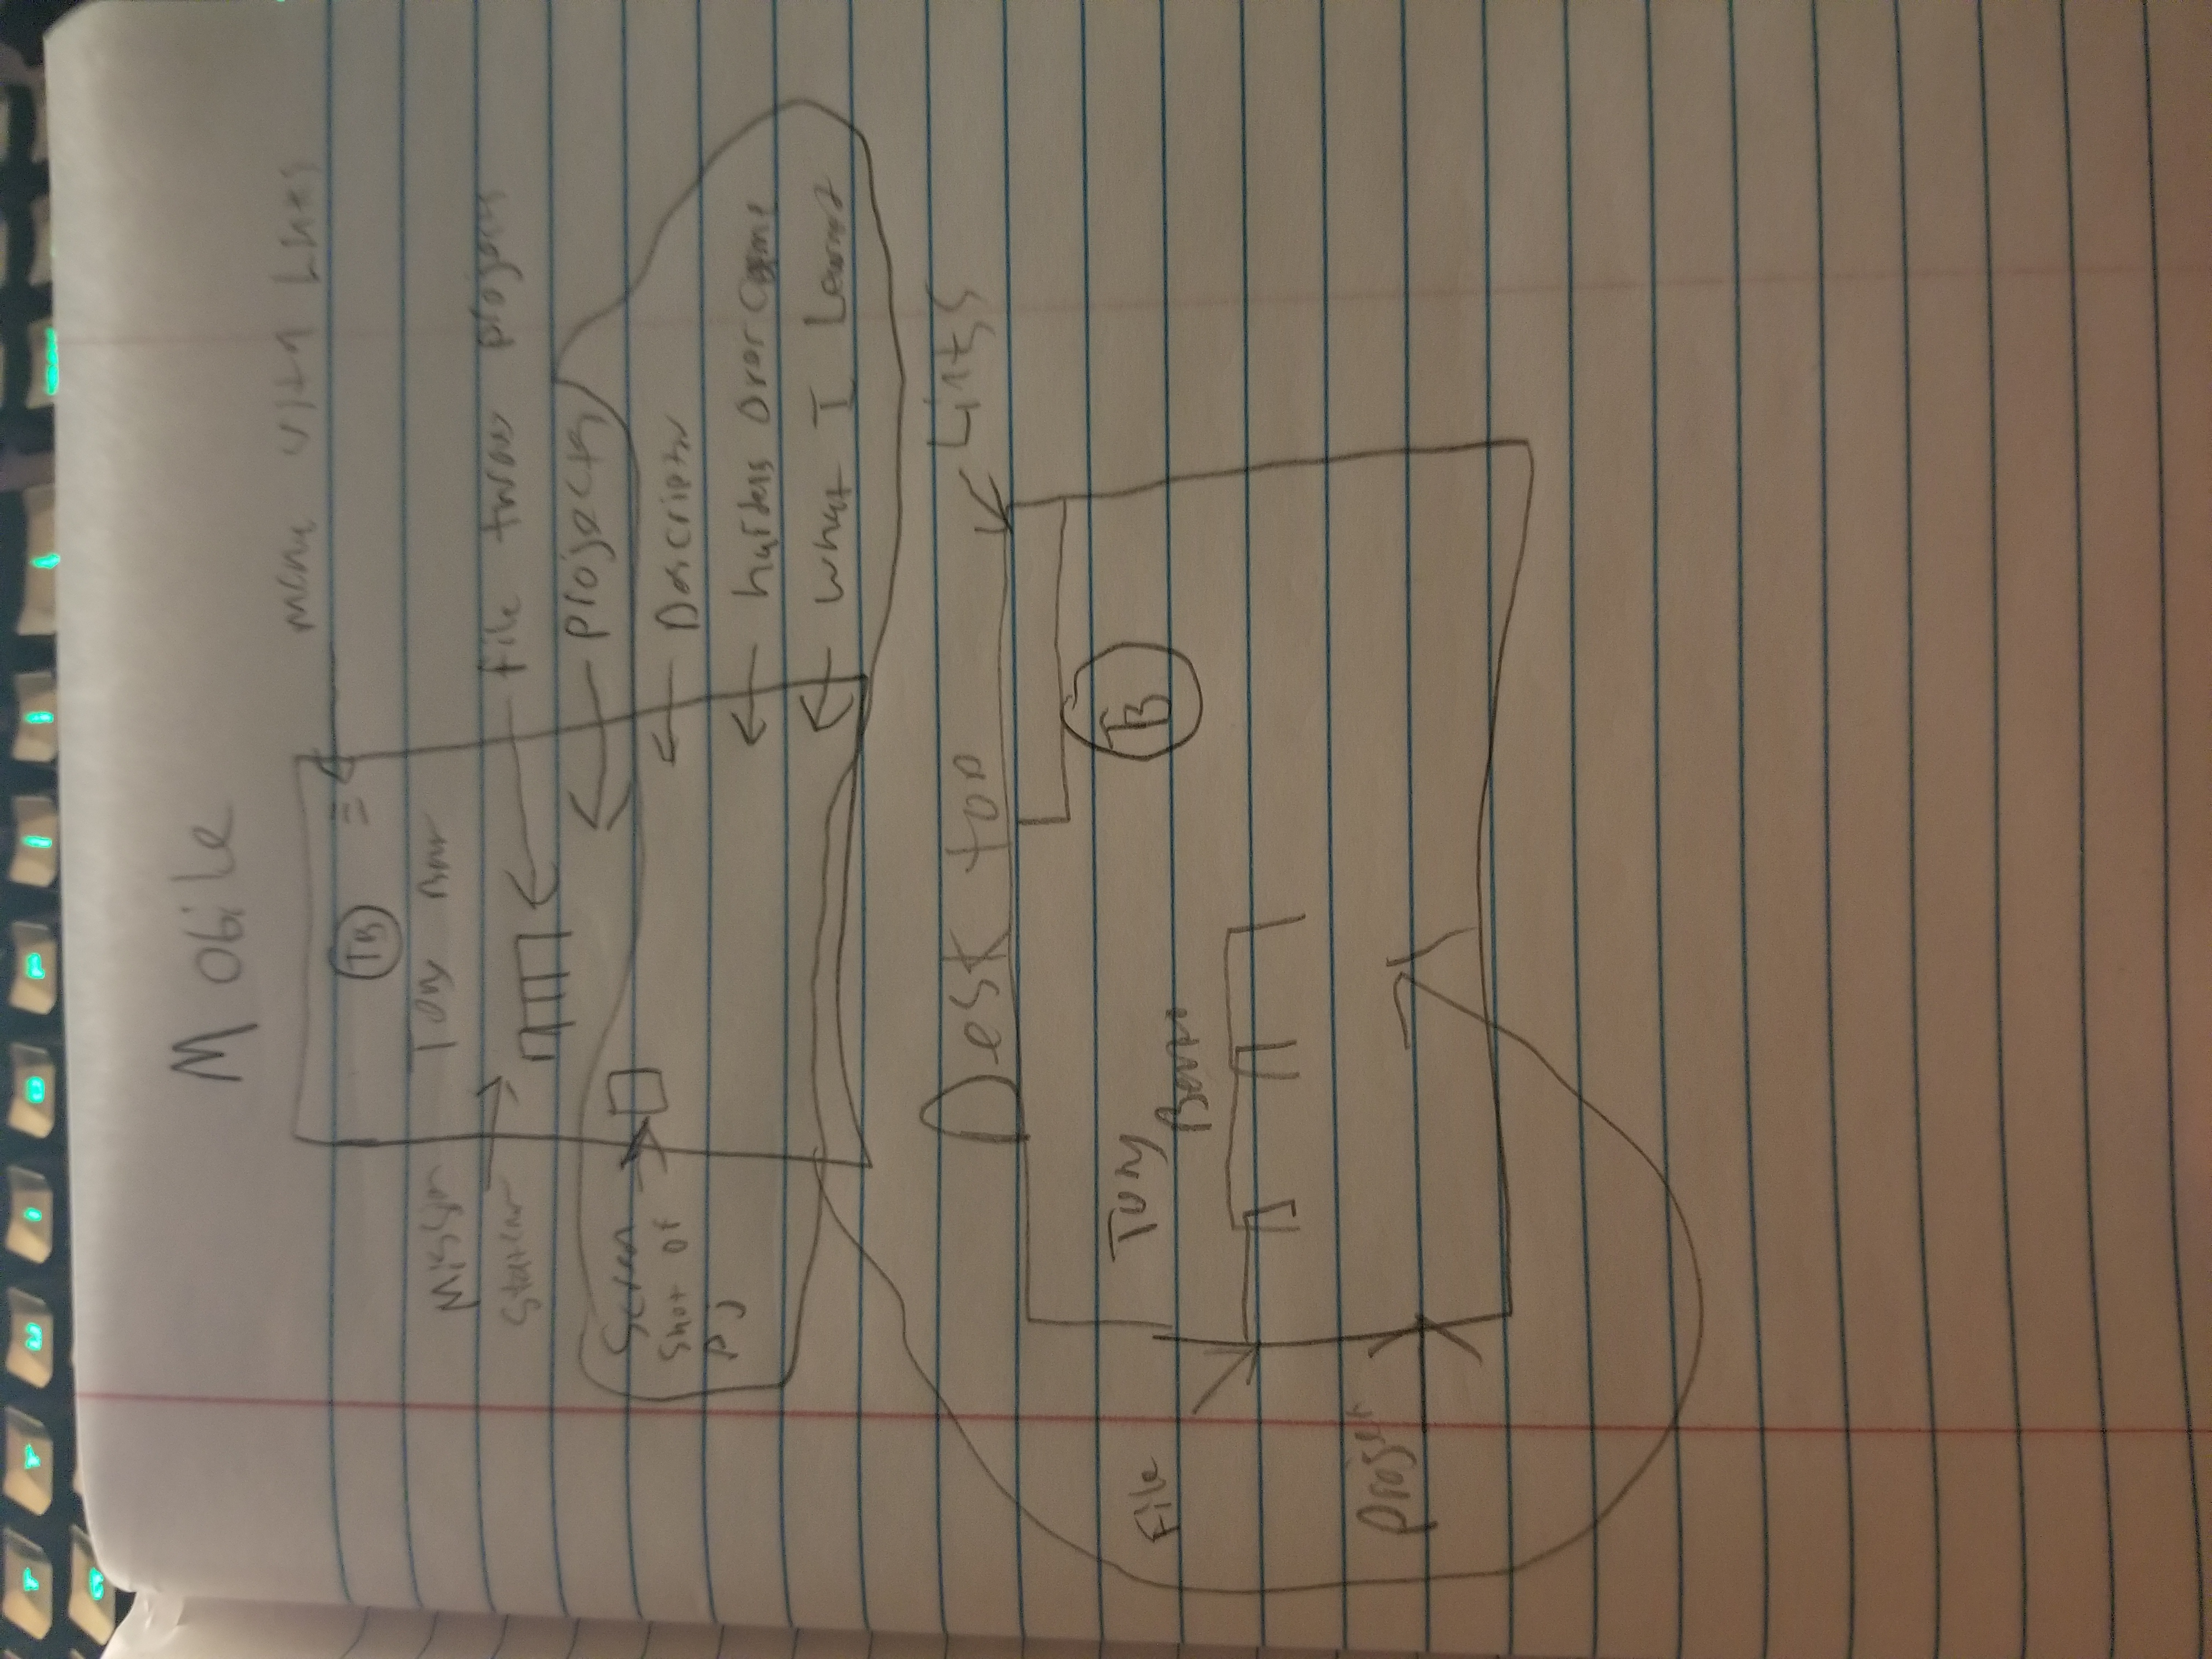 Mobile
menu with Links
TB
Tony
Mission
file throu projects
projects
Screen
Shot of
Pj
Descriptn
hurdels Over Come
What I Learnt
Desk top
Links
Tony
TB
File
Project